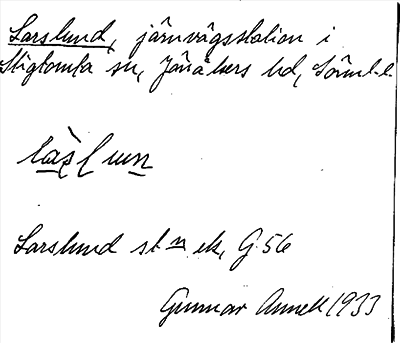 Larslund, järnvägsstation i
Stigtomta sn, Jönåkers hd, Sörml.l.
Larslund st n ek, G 56
Gunnar Annell 1933